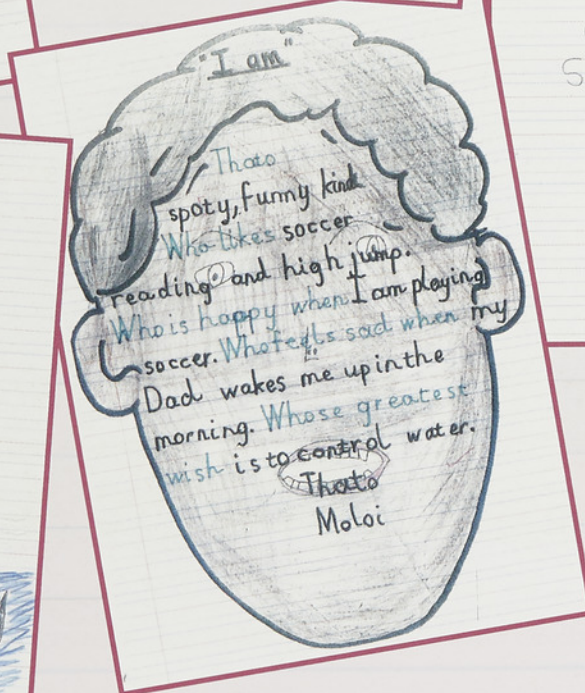 "I am"
Thato
spoty, funny kind
Who likes soccer
reading and high jump.
Who is happy when I am playing
soccer. Who feels sad when my
Dad wakes me up in the
morning. Whose greatest
wish is to control water.
Thato
Moloi
S